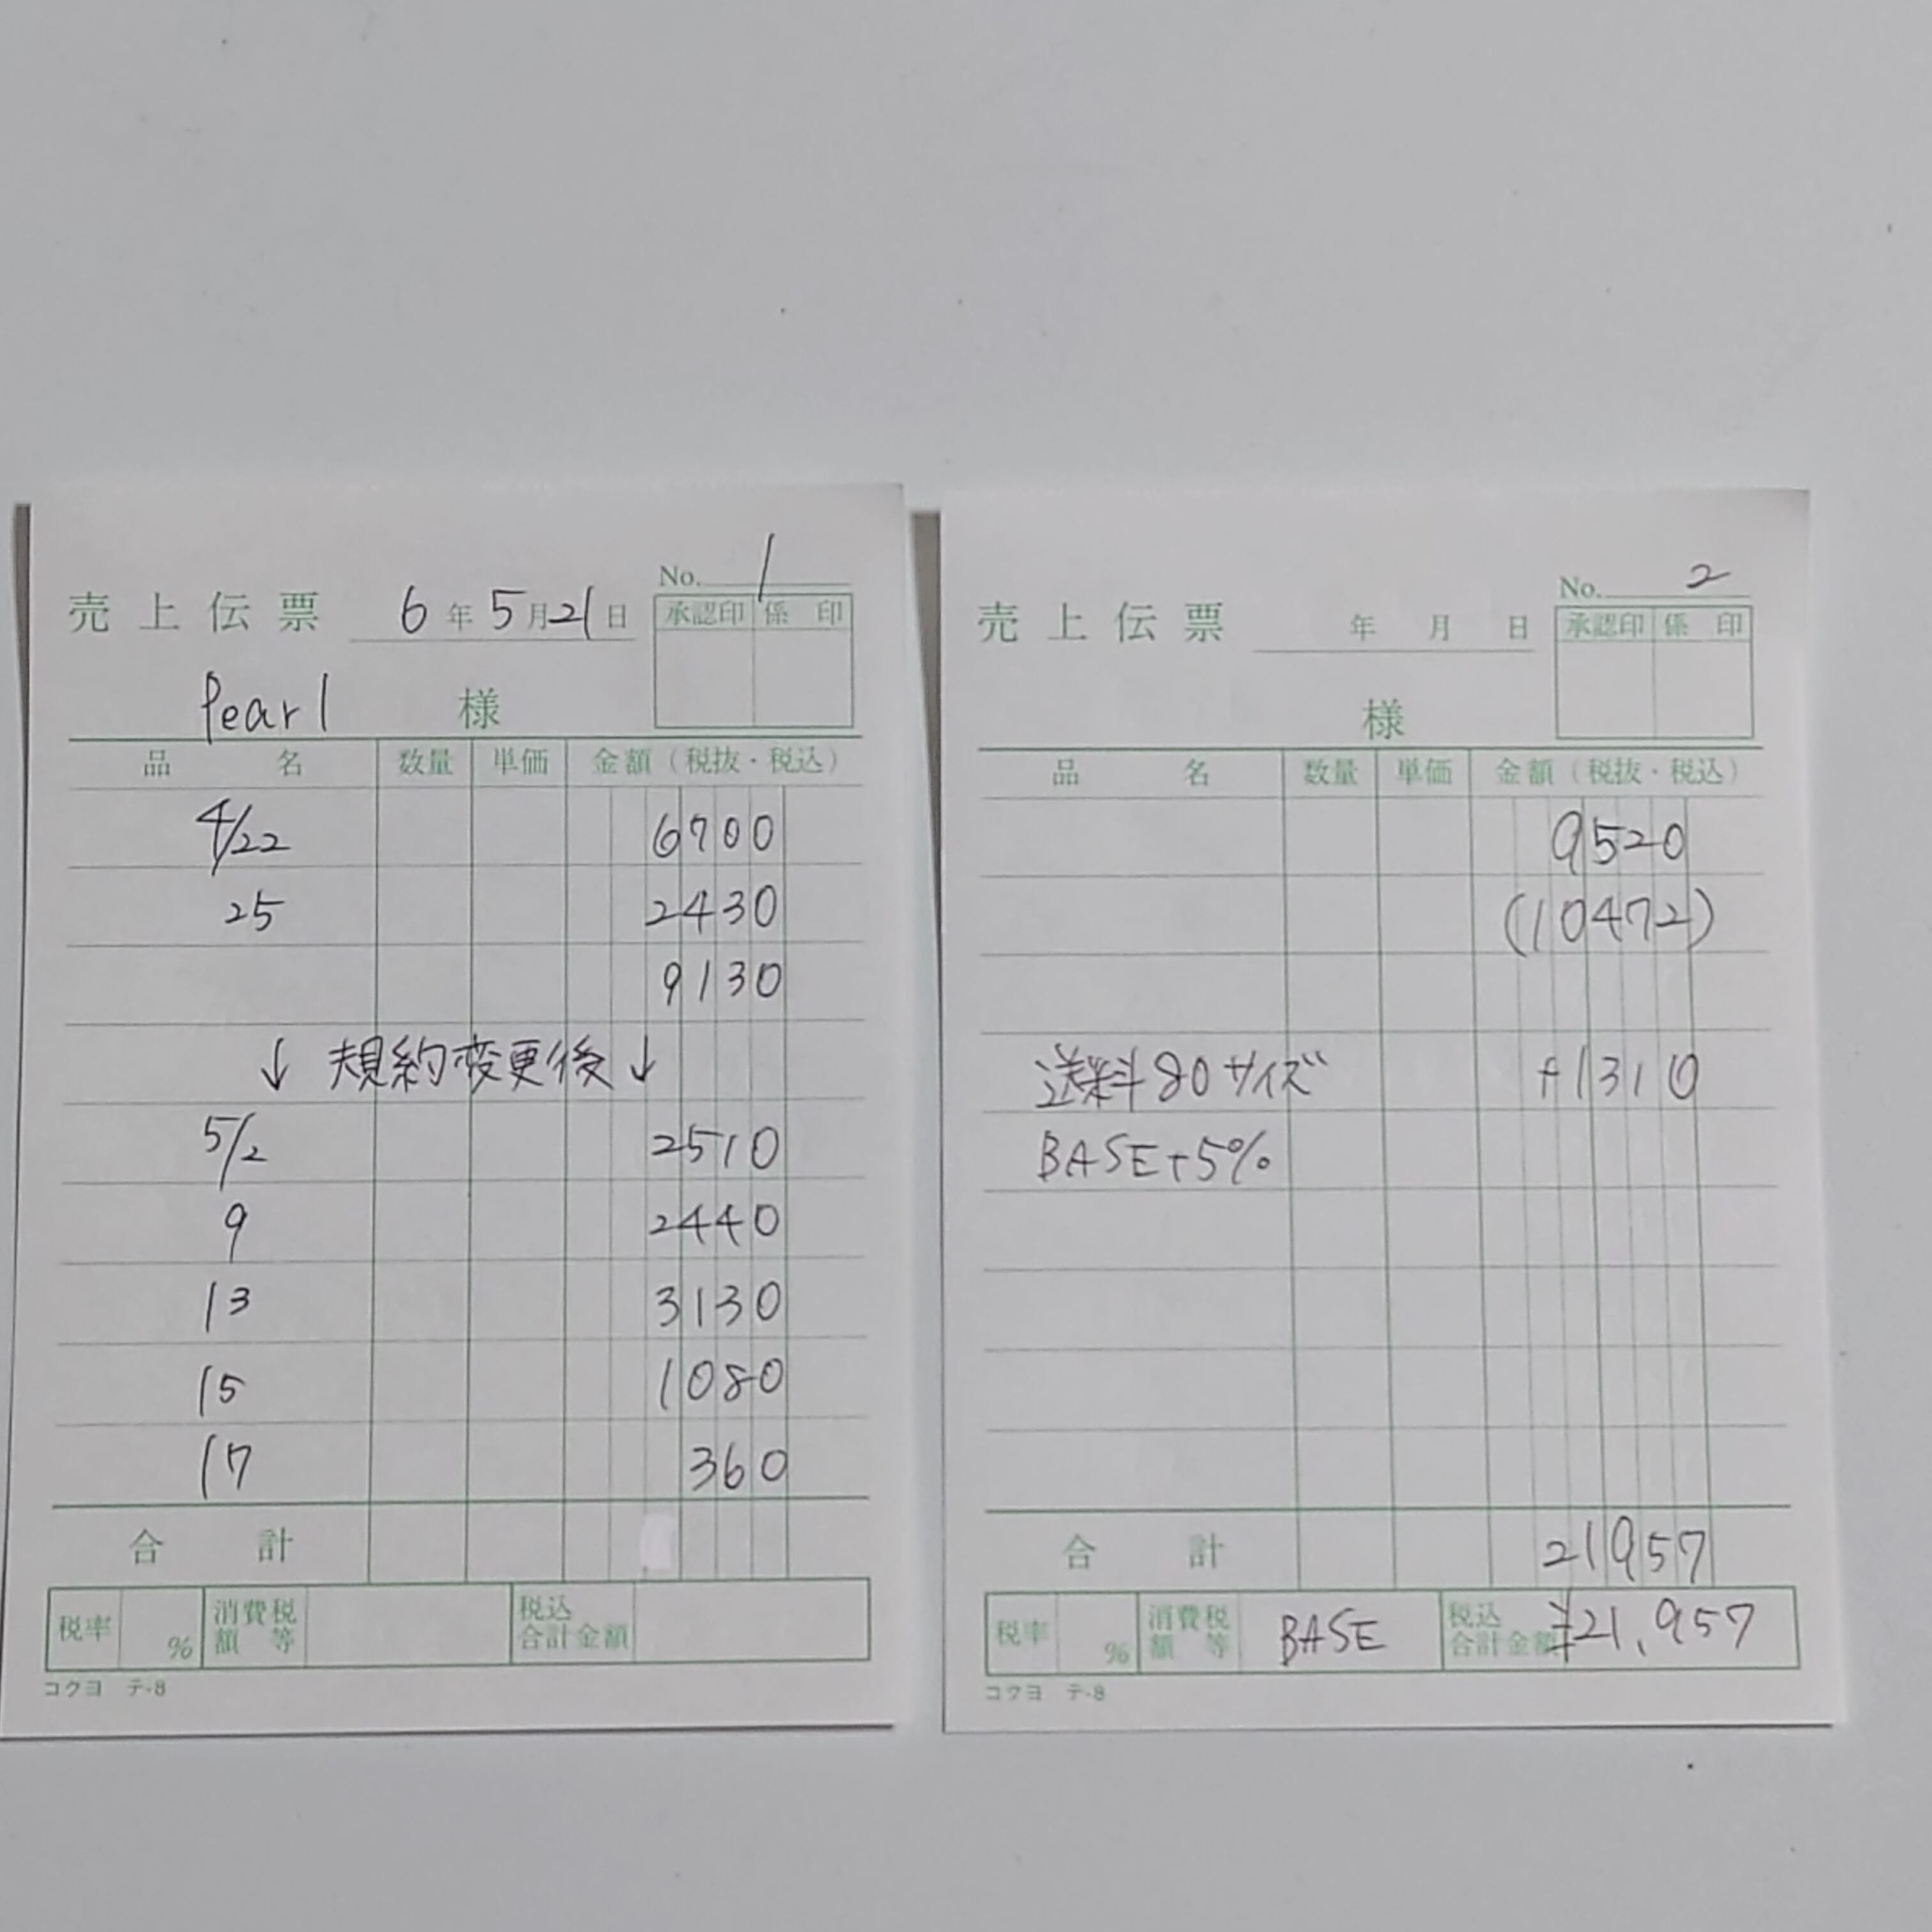 No. 1
売上伝票 6年5月21日
承認印 係印
Pearl 様
品名 数量 単価 金額(税抜・税込)
4/22 6700
25 2430
9130
↓ 規約変更後 ↓
5/2 2510
9 2440
13 3130
15 1080
17 360
合計
税率 % 消費税額等 税込合計金額
コクヨ テ-8
No. 2
売上伝票 年 月 日
承認印 係印
様
品名 数量 単価 金額(税抜・税込)
9520
(10472)
送料80サイズ +1310
BASE+5%
合計 21957
税率 % 消費税額等 BASE 税込合計金額 ¥21,957
コクヨ テ-8